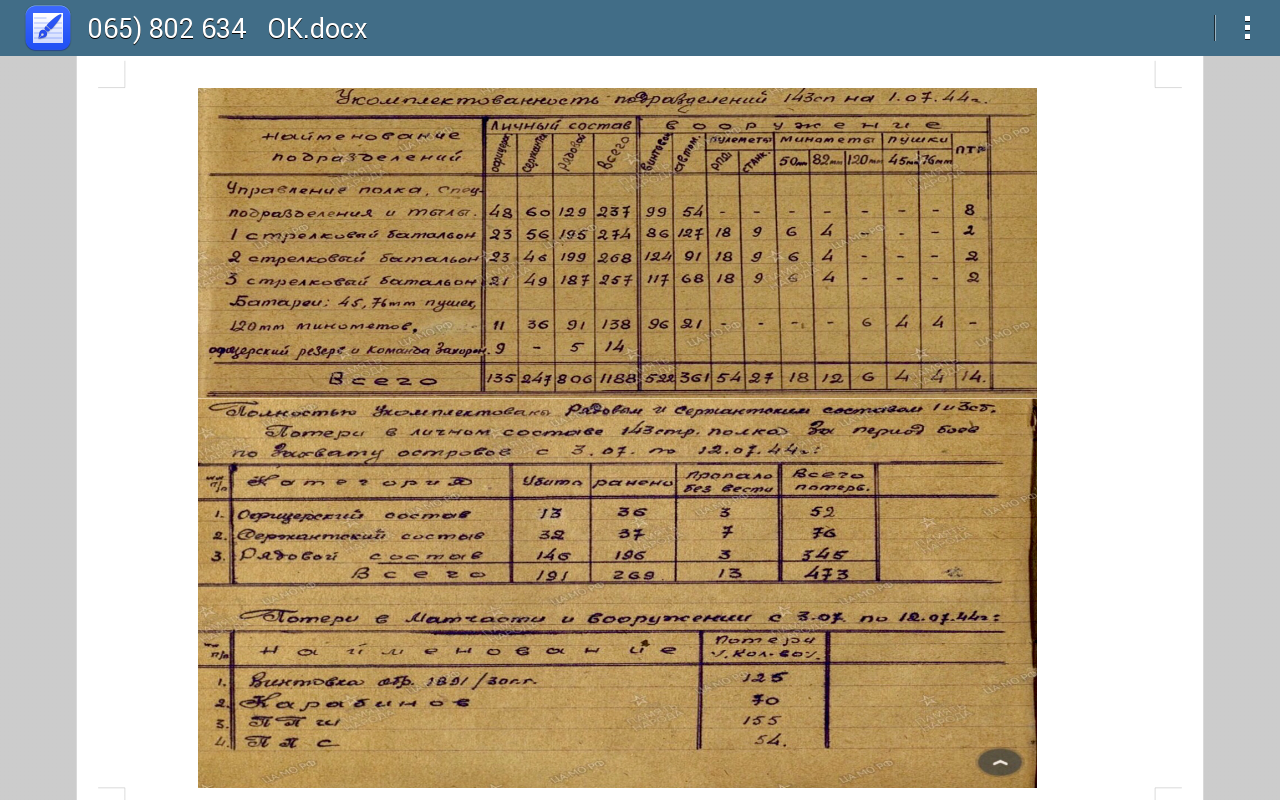 065) 802 634 OK.docx
Укомплектованность подразделений 143сп на 1.07.44г.
Наименование подразделений Личный состав вооружение
офицеры сержанты рядовой всего винтовки автом. пулеметы минометы пушки ПТР
РПД станк. 50мм 82мм 120мм 45мм 76мм
Управление полка, спец-
подразделения и тылы. 48 60 129 237 99 54 - - - - - - - 8
1 стрелковый батальон 23 56 195 274 86 127 18 9 6 4 - - - 2
2 стрелковый батальон 23 46 199 268 124 91 18 9 6 4 - - - 2
3 стрелковый батальон 21 49 187 257 117 68 18 9 6 4 - - - 2
Батареи: 45, 76мм пушек,
120мм минометов. 11 36 91 138 96 21 - - - - 6 4 4 -
офицерский резерв и команда захорон. 9 - 5 14
Всего 135 247 806 1188 522 361 54 27 18 12 6 4 4 14.
Полностью укомплектованы рядовым и сержантским составом 1 и 3сб.
Потери в личном составе 143стр. полка за период боев
по захвату островов с 3.07. по 12.07.44г:
№№ п/п Категория Убито ранено Пропало без вести Всего потерь.
1. Офицерский состав 13 36 3 52
2. Сержантский состав 32 37 7 76
3. Рядовой состав 146 196 3 345
Всего 191 269 13 473
Потери в матчасти и вооружении с 3.07. по 12.07.44г:
№№ п/п Наименование Потери /кол-во/.
1. Винтовка обр. 1891/30г.г. 125
2. Карабинов 70
3. ППШ 155
4. ППС 54.